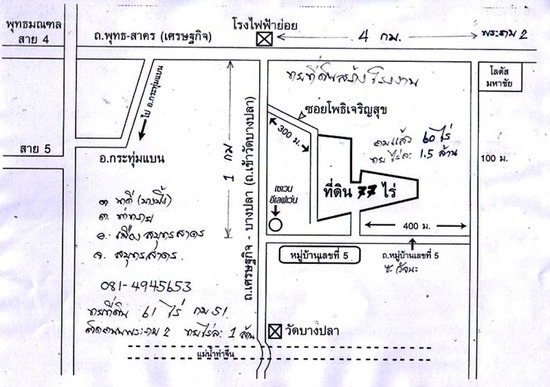 พุทธมณฑล
สาย 4
ถ.พุทธ-สาคร (เศรษฐกิจ)
โรงไฟฟ้าย่อย
4 กม.
พระราม 2
ขายที่ดินสร้างโรงงาน
โลตัส
มหาชัย
ไป อ.กระทุ่มแบน
ซอยโพธิ์เจริญสุข
300 ม.
1 กม
ถมแล้ว 60 ไร่
ขายไร่ละ 1.5 ล้าน
สาย 5
อ.กระทุ่มแบน
100 ม.
ที่ดิน 77 ไร่
เซเวน
อีเลฟเว่น
400 ม.
ถ.เศรษฐกิจ - บางปลา (ถ.เข้าวัดบางปลา)
หมู่บ้านเลขที่ 5
ถ.หมู่บ้านเลขที่ 5
ต. ท่าทราย
อ. เมือง สมุทรสาคร
จ. สมุทรสาคร
081-4945653
ขายที่ดิน 61 ไร่ กม 51
ติดถนนพระราม 2 ขายไร่ละ 1 ล้าน
วัดบางปลา
แม่น้ำท่าจีน